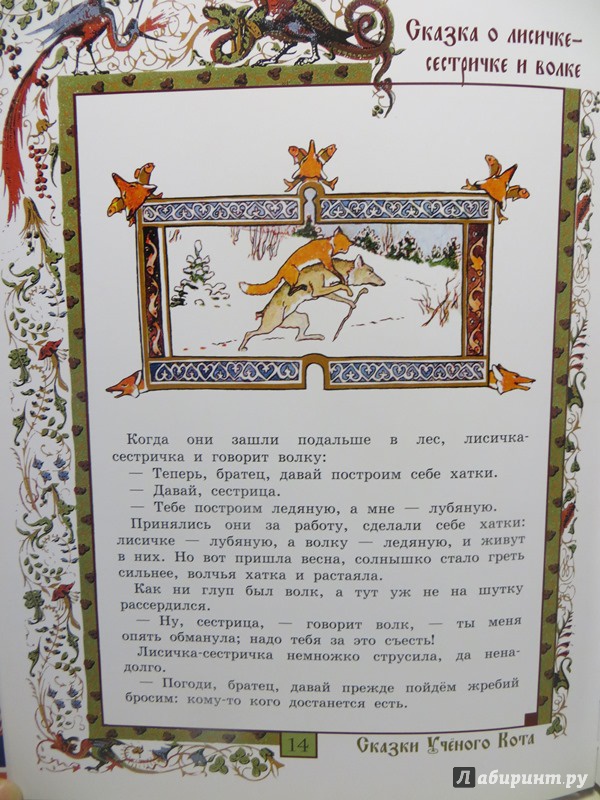 Сказка о лисичке-
сестричке и волке
Когда они зашли подальше в лес, лисичка-
сестричка и говорит волку:
— Теперь, братец, давай построим себе хатки.
— Давай, сестрица.
— Тебе построим ледяную, а мне — лубяную.
Принялись они за работу, сделали себе хатки:
лисичке — лубяную, а волку — ледяную, и живут
в них. Но вот пришла весна, солнышко стало греть
сильнее, волчья хатка и растаяла.
Как ни глуп был волк, а тут уж не на шутку
рассердился.
— Ну, сестрица, — говорит волк, — ты меня
опять обманула; надо тебя за это съесть!
Лисичка-сестричка немножко струсила, да нена-
долго.
— Погоди, братец, давай прежде пойдём жребий
бросим: кому-то кого достанется есть.
14
Сказки Учёного Кота
Лабиринт.ру